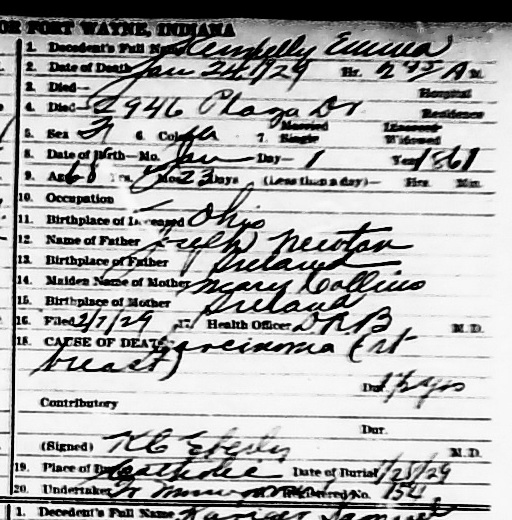 OR FORT WAYNE, INDIANA
1. Decedent's Full Name Kennelly Emma
2. Date of Death Jan 24-1929 Hr. 2 45 A M.
3. Died— Hospital
4. Died— 2946 Plaza Dr Residence
5. Sex F 6. Color W 7. Married Single Divorced Widowed
8. Date of Birth—Mo. Jan Day— 1 Year 1861
9. Age 68 Yrs. Mos. 23 Days (Less than a day)— Hrs. Min.
10. Occupation
11. Birthplace of Deceased Ohio
12. Name of Father Joseph Newton
13. Birthplace of Father Ireland
14. Maiden Name of Mother Mary Collins
15. Birthplace of Mother Ireland
16. Filed 2/7/29 17. Health Officer D R B M.D.
18. CAUSE OF DEATH Carcinoma (rt
breast)
Dur. yrs
Contributory
Dur.
(Signed) K C Eberly M.D.
19. Place of Burial Catholic Date of Burial 1/28/29
20. Undertaker Registered No. 154
1. Decedent's Full Name Samuel